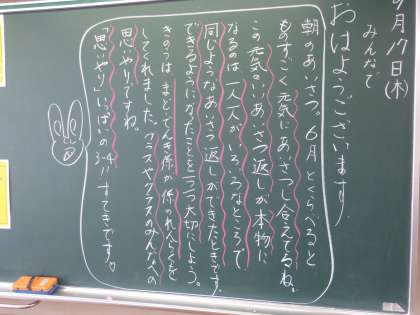 月17日(木)
みんなで
おはようございます。
朝のあいさつ。6月とくらべると
ものすごく元気にあいさつし合えてるね。
この元気のいいあいさつ返しが本物に
なるのは一人一人がいろいろなところで
同じようなあいさつ返しができたときです。
できるようになったことを1つ1つ大切にしよう。
きのうは、まど・でんき係が係の
してくれました。クラスやクラスのみんなへの
思いやりですね。
「思いやり」いっぱいの3-4!!すてきです。